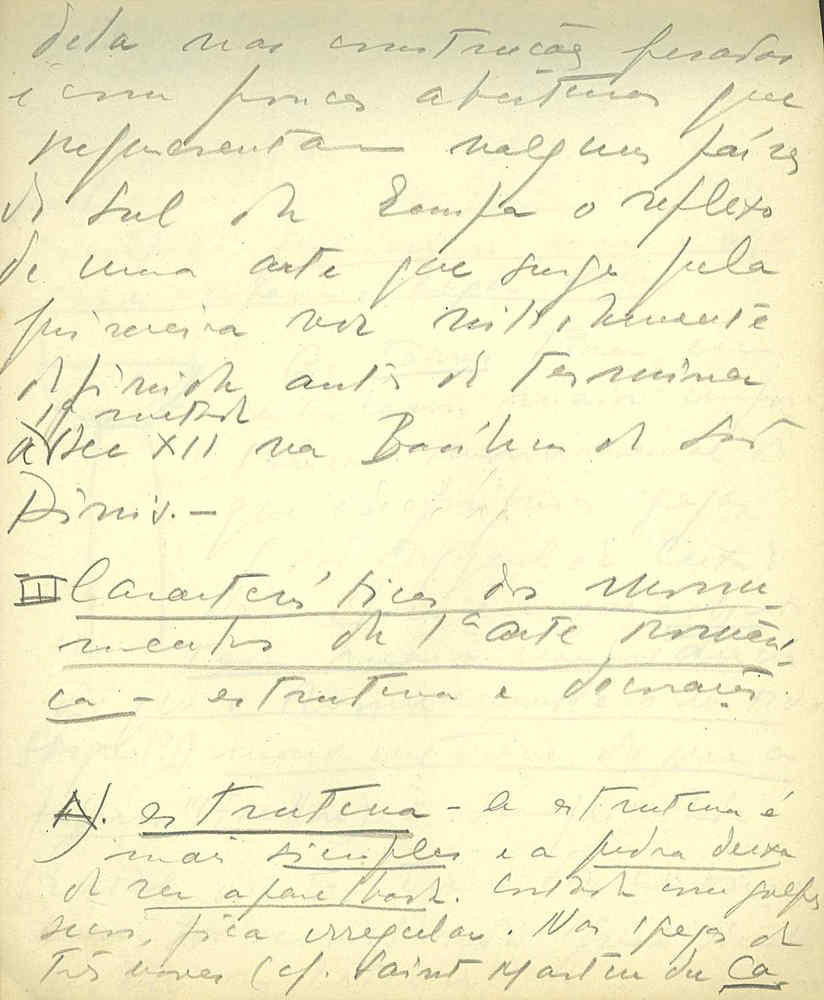 dela nas construções pesadas
e com poucas aberturas que
representam nalguns países
do Sul da Europa o reflexo
de uma arte que surge pela
primeira vez nitidamente
definida antes de terminar
1ª metade
a séc XII na Basílica de São
Dinis. -
II Características dos monu-
mentos da 1ª arte români-
ca - estrutura e decoração.
A). estrutura - a estrutura é
mais simples e a pedra deixa
de ser aparelhada. Cortada com golpes
secos, fica irregular. Nas igrejas de
três naves (cf. Saint Martin du Ca